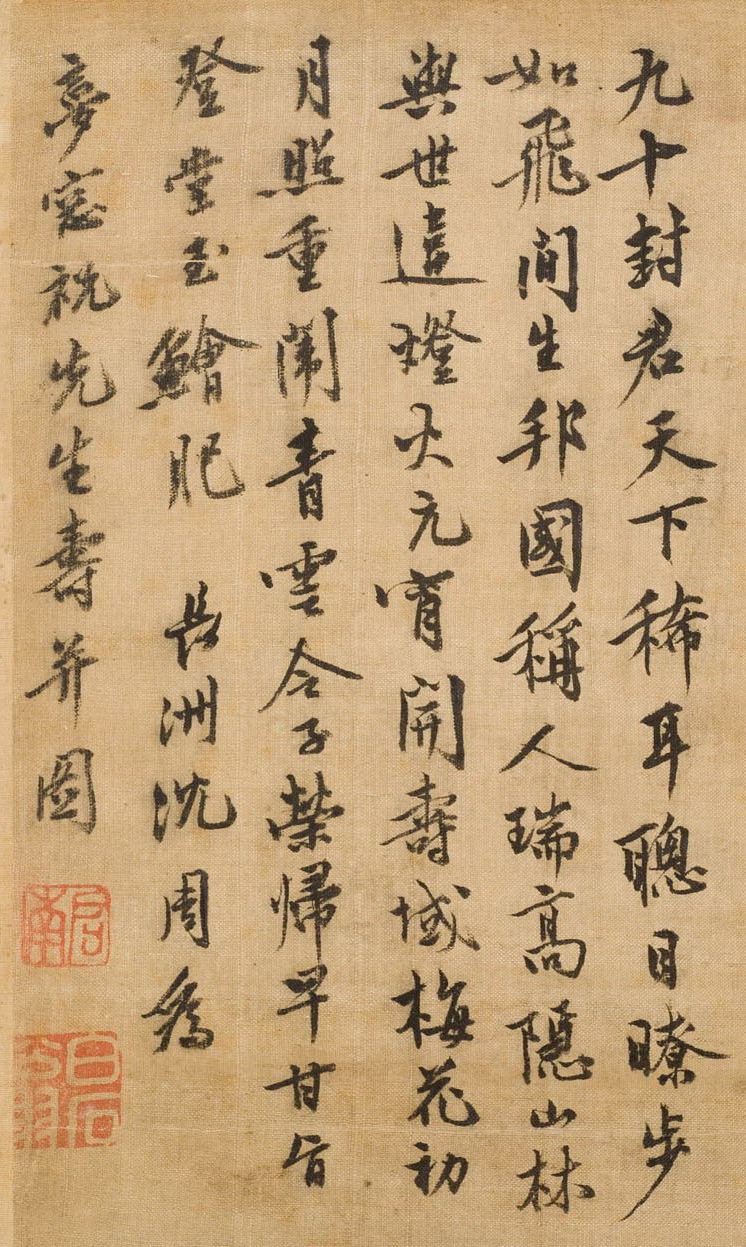 九十封君天下稀耳聰目瞭步
如飛間生邦國稱人瑞高隱山林
與世違燈火元宵開壽域梅花初
月照重闈青雲令子榮歸早甘旨
登堂玉鱠肥　長洲沈周為
夢窓祝先生壽并圖
啟南
白石翁